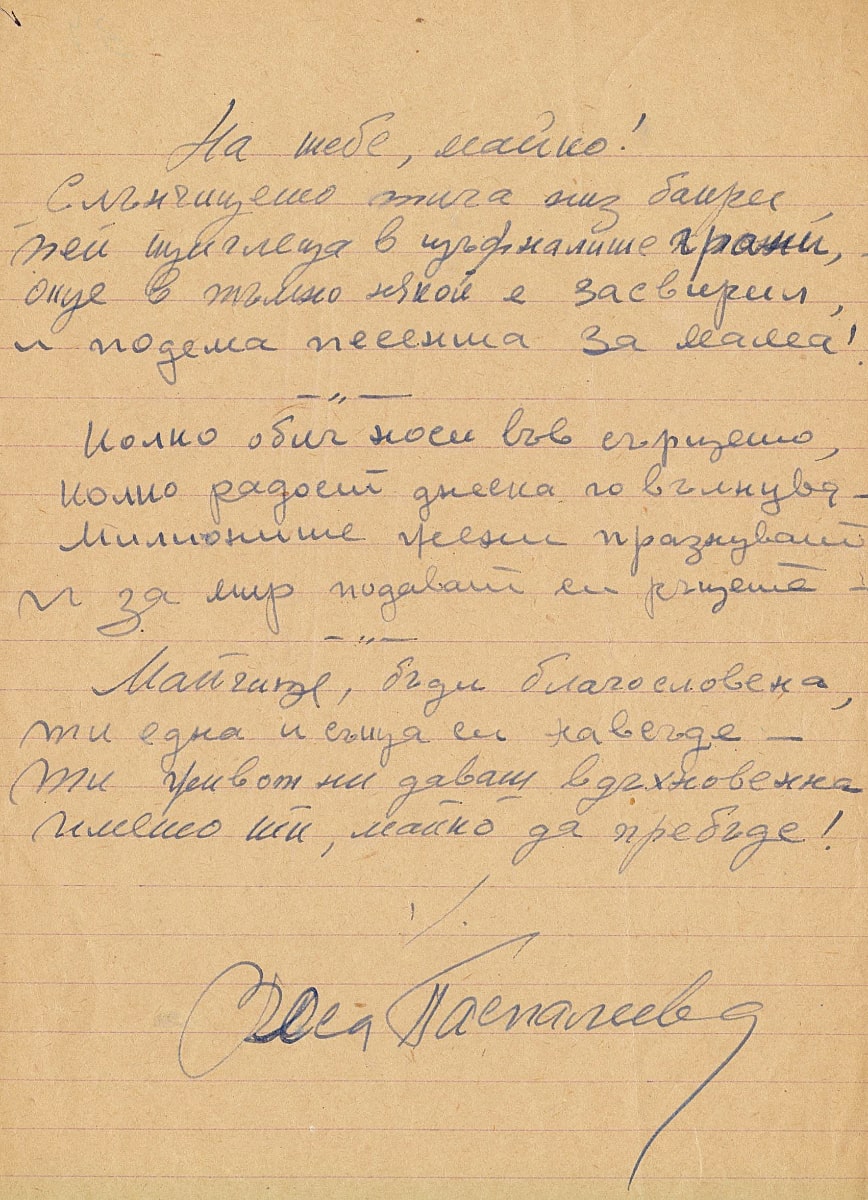 На тебе, майко!
Слънчицето тича низ баири,
пей щиглеца в цъфналите грани, -
още в тъмно някой е засвирил,
и подема песента за мама!
— „ —
Колко обич носи във сърцето,
колко радост днеска го вълнува -
Милионите жени празнуват
и за мир подават си ръцете -
— „ —
Майчице, бъди благословена,
ти една и съща си навсъде —
Ти живот ни даваш вдъхновенна
името ти, майко да пребъде!
Роса Паспалеева